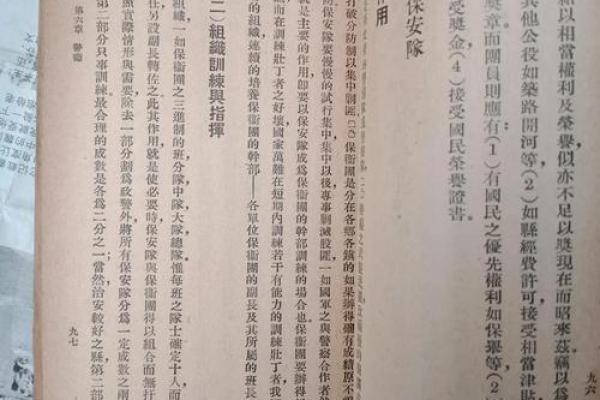 須以相當權利及榮譽似亦不足以獎現在而昭來茲竊以爲
其他公役如築路開河等(2)如縣經費許可接受相當津貼
獎章而團員則應有(1)有國民之優先權利如保舉等(2
受獎金(4)接受國民榮譽證書。
九六
保安隊
作用
打破分防制以集中剿匪
保衞團是分在各鄉各鎮的如果辦得確有成績原不
保衞隊要慢慢的試行集中集中以後專事剿滅股匪一如國軍之與警察合作者然
就是主要的作用即要以保安隊成爲保衞團的幹部訓練的場合也保衞團要辦得
而在訓練壯丁者之好壞國家萬難在短期內訓練若干有能力的訓練壯丁者我
的組織連續的培養保衞團的幹部——各單位保衞團的副長及其所屬的班長
二)組織訓練與指揮
組織一如保衞團之三進制的班分隊中隊大隊總隊惟每班之隊士確定十人而
任另設副長轉佐之此其作用就是使必要時保安隊與保衞團得以組合而無扞
照實際情形與需要除去一部分劃爲政警外將所有保安隊分爲一定成數之兩
第二部分只事訓練最合理的成數是各爲二分之一當然治安較好之縣第二部
第六章 警衞
九七